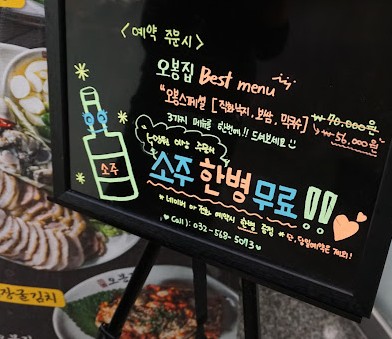 <예약 주문시>
오봉집 Best menu
"오봉스페셜 [직화낙지, 보쌈, 막국수]
₩70,000원
3가지 메뉴를 한번에!! 드셔보세요
₩56,000원"
이상 주문시
소주 한병 무료!!
소주
* 네이버 or 전화 예약시 한병 증정 * 단, 당일예약은 제외!
♥ Call): 032-568-5073 ♥
장굴김치